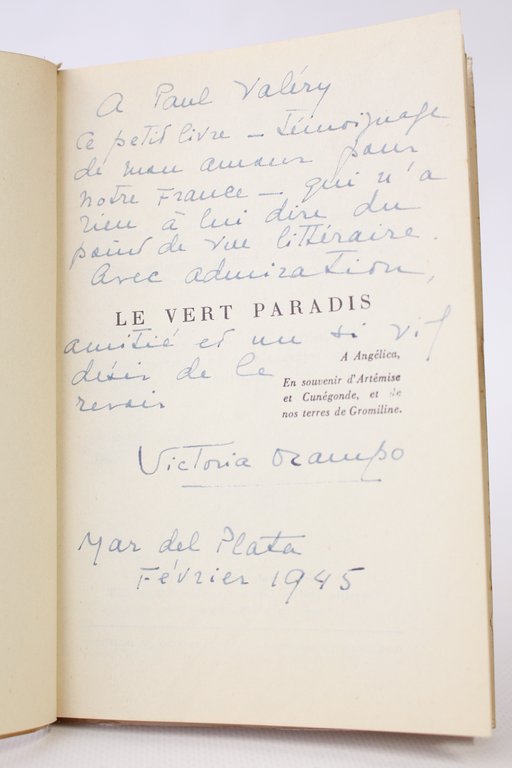 A Paul Valéry
Ce petit livre — témoignage
de mon amour pour
notre France — qui n'a
rien à lui dire du
point de vue littéraire.
Avec admiration,
LE VERT PARADIS
amitié et un si vif
désir de le
revoir
A Angélica,
En souvenir d'Artémise
et Cunégonde, et de
nos terres de Gromiline.
Victoria Ocampo
Mar del Plata
Février 1945